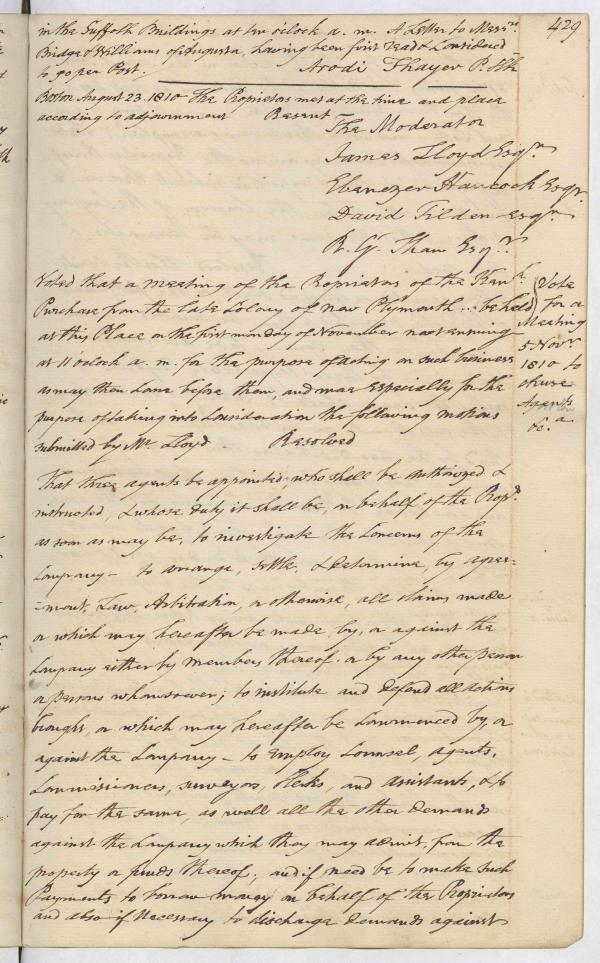 429
in the Suffolk Buildings at ten o'clock a. m. A Letter to Mess.rs
Bridge & Williams of Augusta, having been first read & Considered
to go per Post. Arodi Thayer P. Clk
Boston August 23. 1810 The Proprietors met at the time and place
according to adjournment Present
The Moderator
James Lloyd Esqr.
Ebenezer Hancock Esqr.
David Tilden Esqr.
R. G. Shaw Esqr.
Voted that a meeting of the Proprietors of the Kenk.
Purchase from the late Colony of new Plymouth be held
at this Place on the first monday of November next ensuing
at 11 oClock a. m. for the purpose of acting on such business
as may then Come before them, and more Especially for the
purpose of taking into Consideration the following motions
submitted by Mr. Lloyd. Resolved
(Vote
for a
Meeting
5 Novr
1810 to
chuse
Agents
&c.a
That three agents be appointed, who shall be authorized &
instructed, & whose duty it shall be, on behalf of the Prop.rs
as soon as may be, to investigate the Concerns of the
Company - to arrange, settle, & Determine, by agree-
-ment, Law, Arbitration, or otherwise, all claims made
or which may hereafter be made, by, or against the
Company either by members thereof, or by any other person
or persons whomsoever; to institute and defend all actions
brought, or which may hereafter be Commenced by, or
against the Company - to Employ Counsel, agents,
Commissioners, surveyors, Clerks, and assistants, & to
pay for the same, as well all the other Demands
against the Company which they may admit, from the
property or funds thereof, and if need be to make such
Payments to borrow money on behalf of the Proprietors
and also if Necessary to discharge Demands against